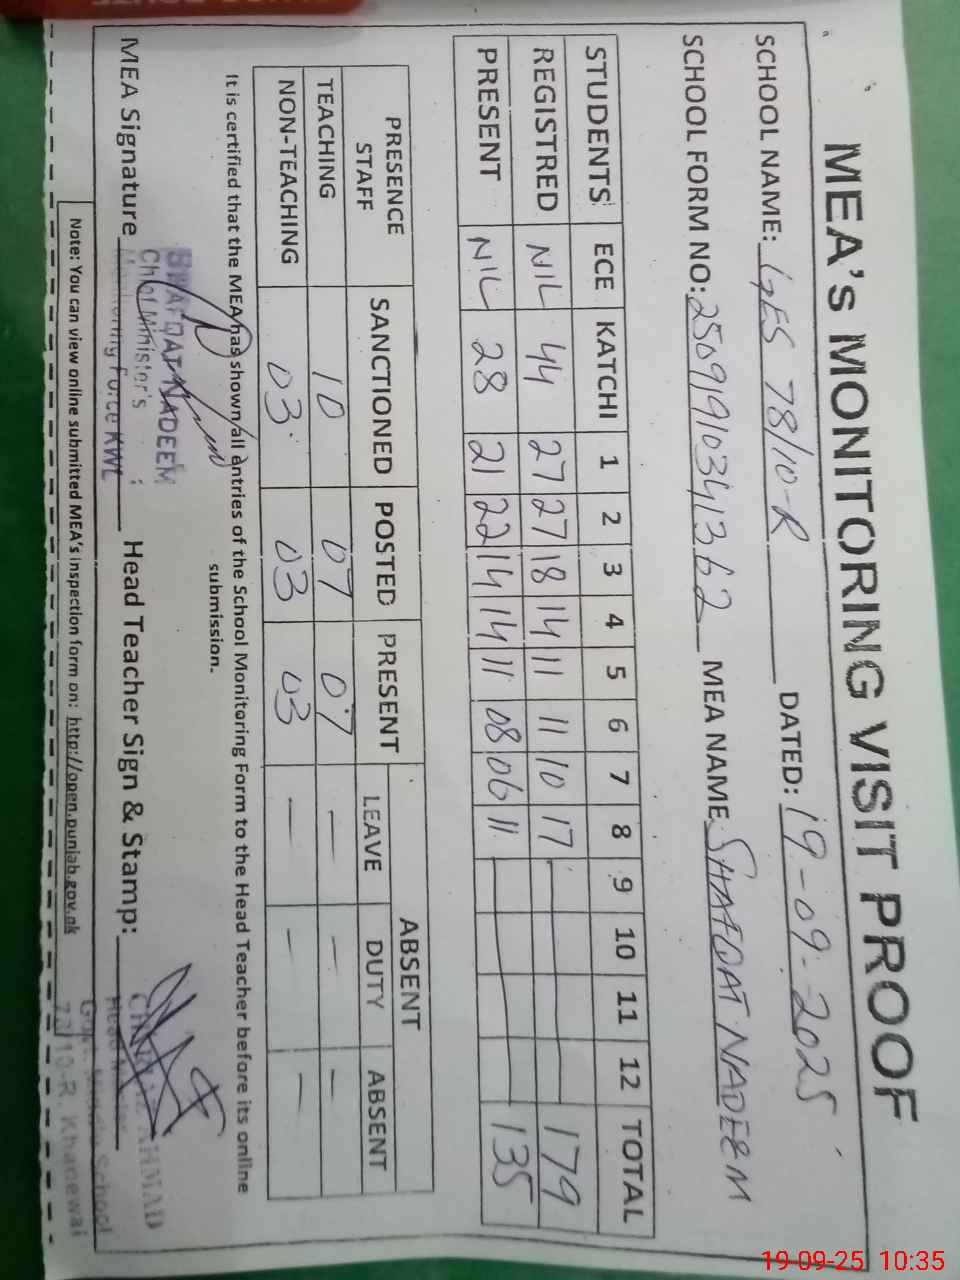 MEA's MONITORING VISIT PROOF
SCHOOL NAME: GES 78/10-R DATED: 19-09-2025
SCHOOL FORM NO: 25091910341362 MEA NAME SHAFQAT NADEEM
STUDENTS ECE KATCHI 1 2 3 4 5 6 7 8 9 10 11 12 TOTAL
REGISTRED NIL 44 27 27 18 14 11 11 10 17 179
PRESENT NIL 28 21 22 14 14 11 08 06 11 135
PRESENCE STAFF SANCTIONED POSTED PRESENT ABSENT
LEAVE DUTY ABSENT
TEACHING 10 07 07 — — —
NON-TEACHING 03 03 03 — — —
It is certified that the MEA has shown all entries of the School Monitoring Form to the Head Teacher before its online
submission.
SHAFQAT NADEEM
Chief Minister's
Monitoring Force KWL
MEA Signature Head Teacher Sign & Stamp:
AHMAD
School
10-R. Khanewal
Note: You can view online submitted MEA's inspection form on: http://open.punjab.gov.pk
19-09-25 10:35